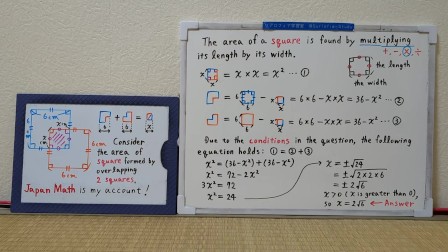 6cm
x cm
6cm
6cm
6cm
6
6
x
Consider
the area of
square formed by
overlapping
2 squares.
Japan Math is my account!
The area of a square is found by multiplying
+, −, ×, ÷
its length by its width.
the length
the width
x = x × x = x² ··· ①
x
= 6 − x = 6×6−x×x = 36−x² ··· ②
= 6 − x = 6×6−x×x = 36−x² ··· ③
Due to the conditions in the question, the following
equation holds: ① = ② + ③
x² = (36−x²)+(36−x²)
x² = 72−2x²
3x² = 72
x² = 24
x = ±√24
= ±√2×2×6
= ±2√6
x>0 (x is greater than 0),
so x = 2√6 ← Answer